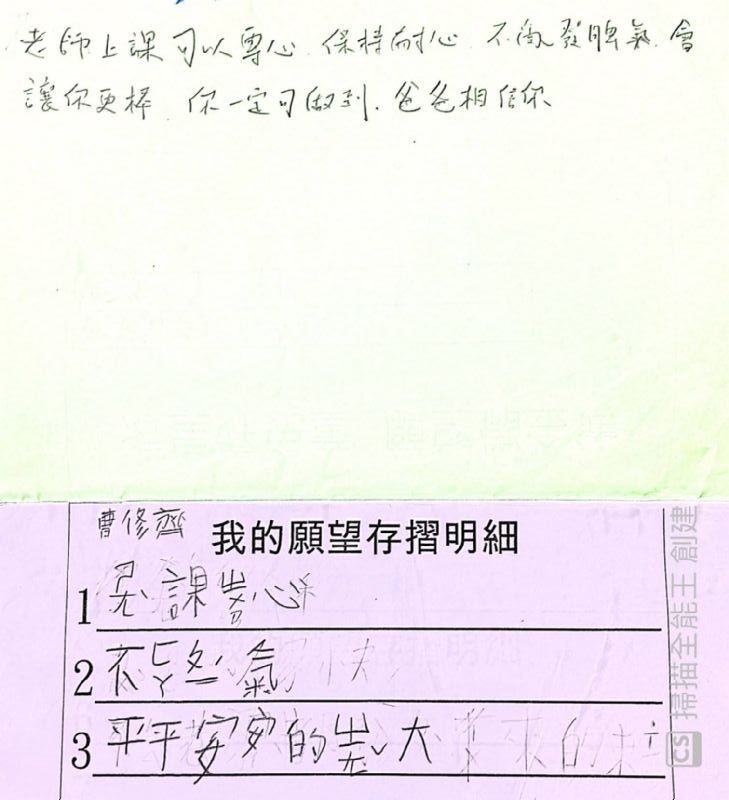 老師上課可以專心 保持耐心 不亂發脾氣 會
讓你更棒 你一定可做到 爸爸相信你
曹修齊
我的願望存摺明細
1 課ㄓㄨㄢ心
2 不ㄈㄚ 氣
3 平平安安的ㄓㄤˇ大
CS 掃描全能王 創建